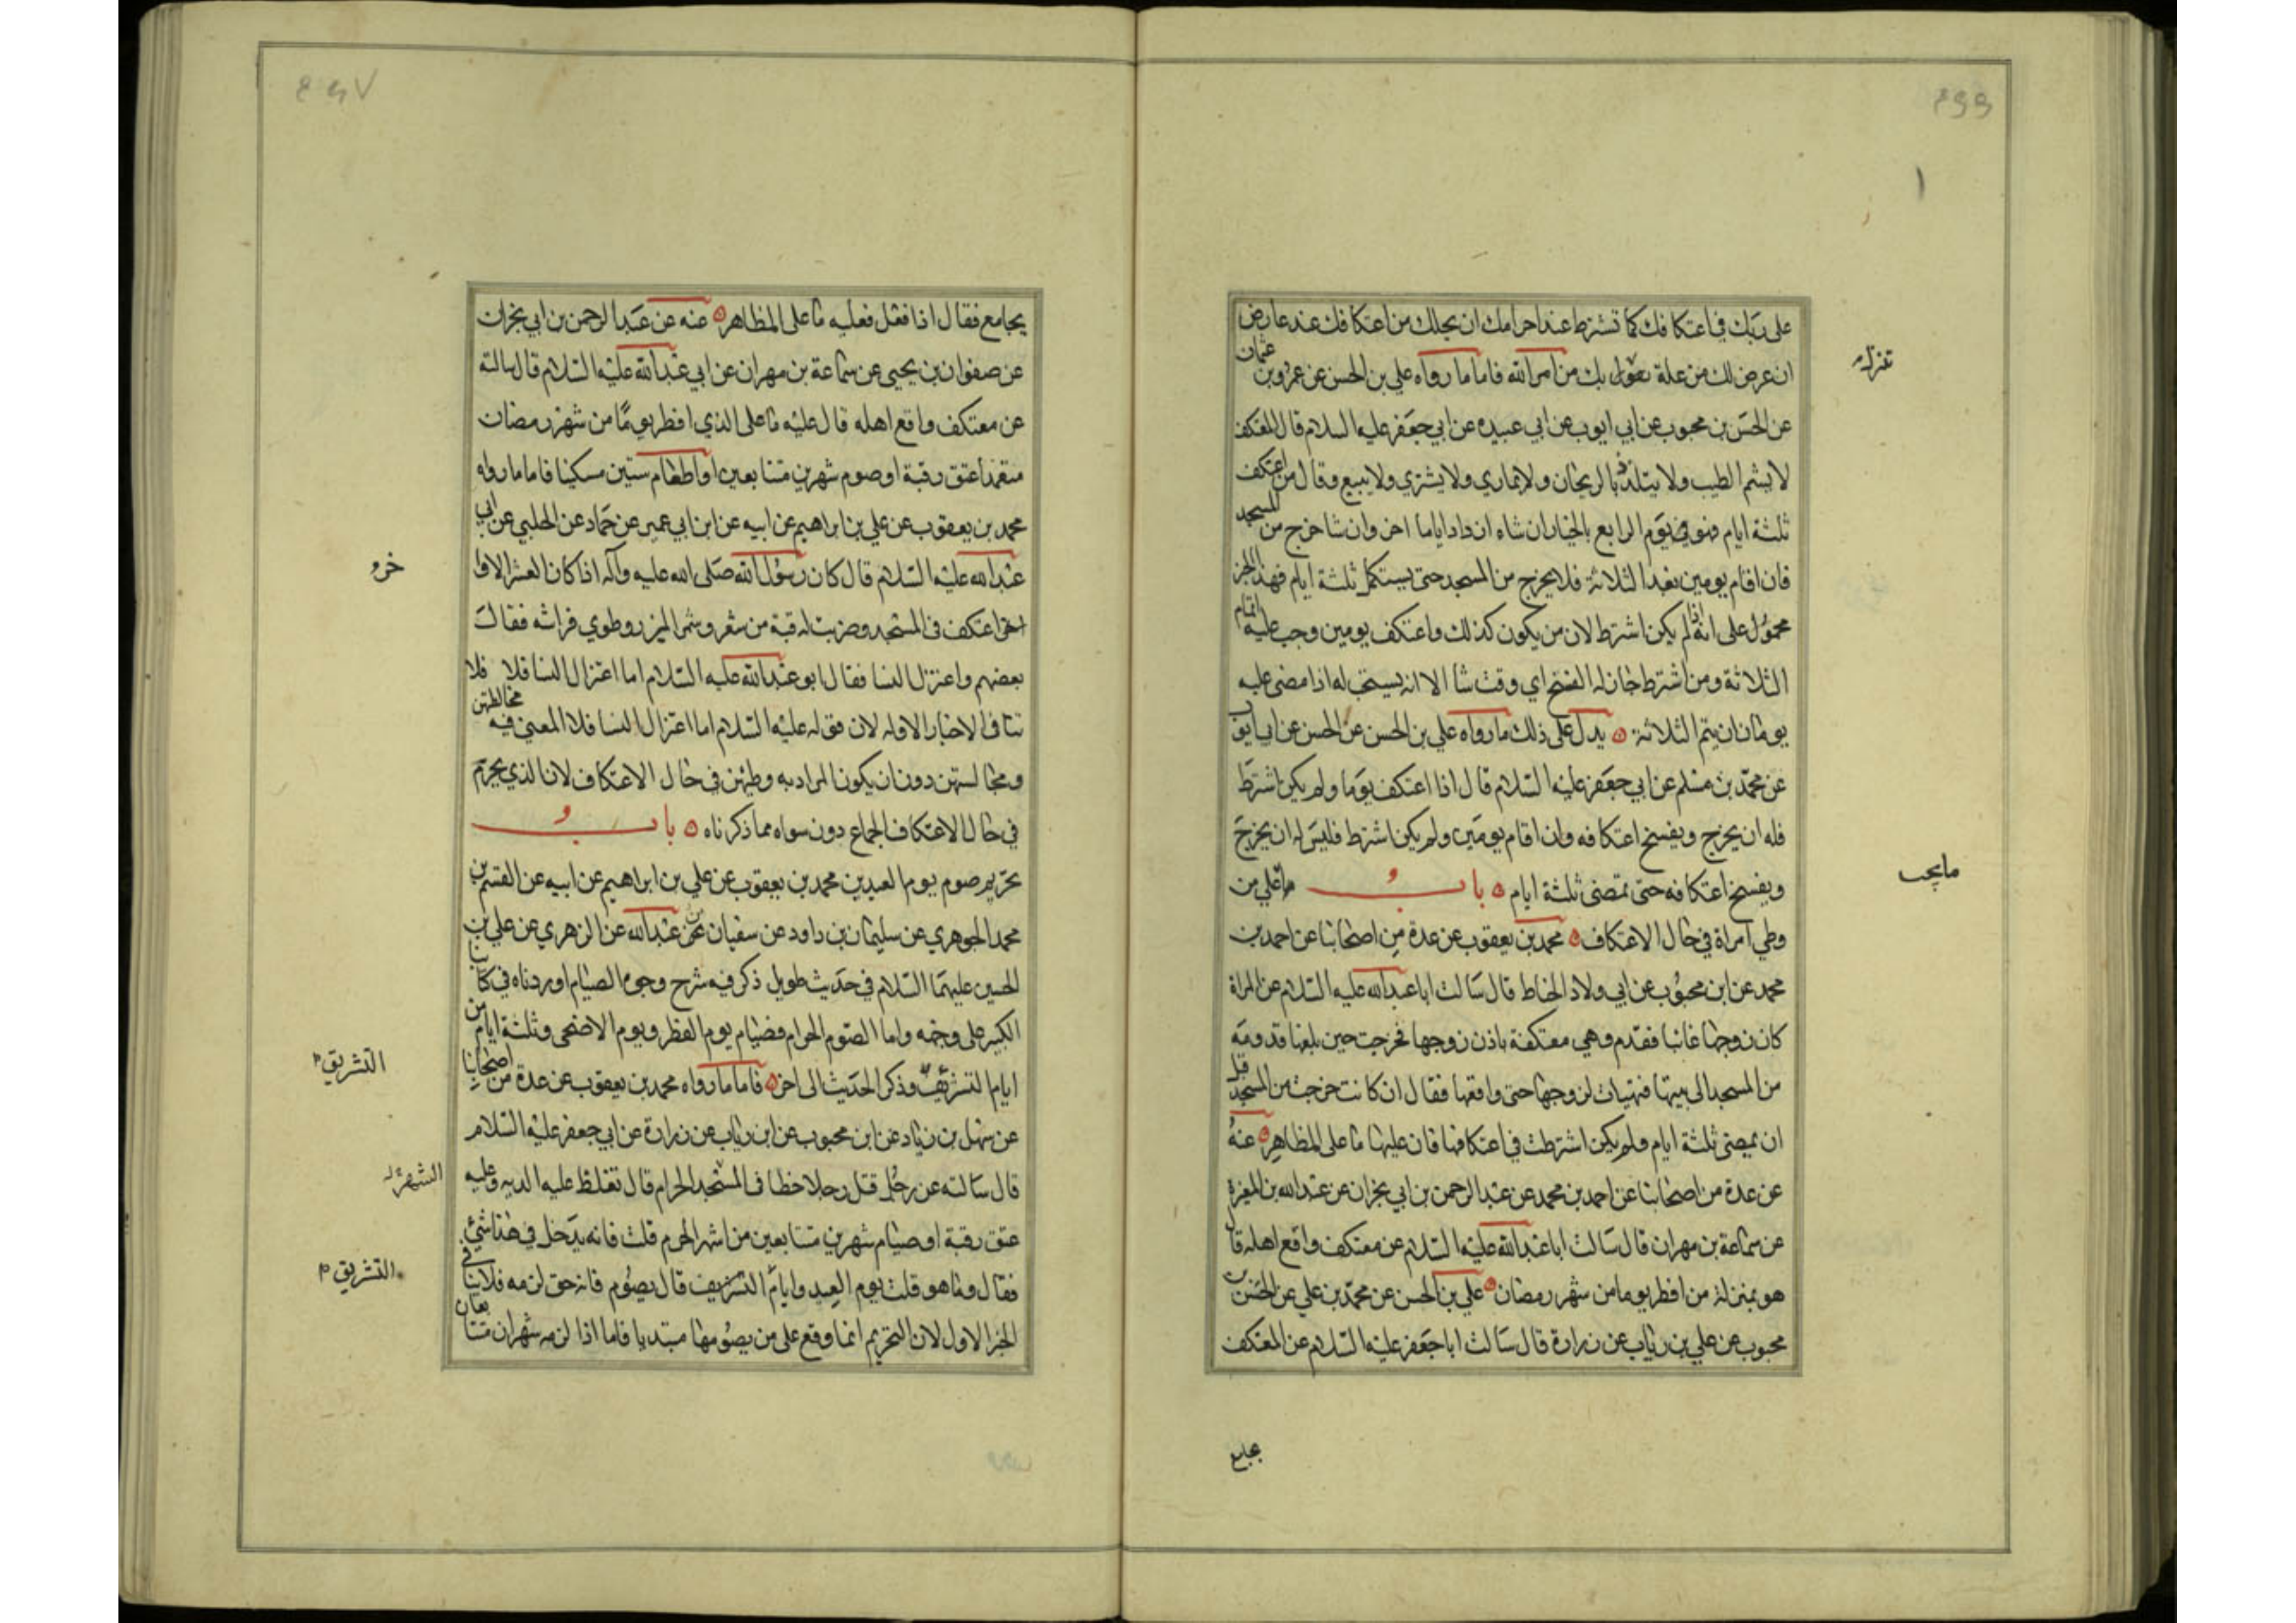 ٤٦٦
على ربك في اعتكافك كما تشترط عند احرامك ان يحلك من اعتكافك عند عارض
ان عرض لك من علة تنزل بك من امر الله فاما ما رواه علي بن الحسن عن عمرو بن عثمان
تنزل
عن الحسن بن محبوب عن ابي ايوب عن ابي عبيده عن ابي جعفر عليه السلام قال المعتكف
لا يشم الطيب ولا يتلذذ بالريحان ولا يماري ولا يشتري ولا يبيع وقال من اعتكف
ثلثة ايام فهو يوم الرابع بالخيار ان شاء ازداد اياما اخر وان شا خرج من المسجد
فان اقام يومين بعد الثلاثة فلا يخرج من المسجد حتى يستكمل ثلثة ايام فهذا الخبر
محمول على انه اذا لم يكن اشترط لان من يكون كذلك واعتكف يومين وجب عليه اتمام
الثلاثة ومن اشترط جاز له الفسخ اي وقت شا الا انه يستحب له اذا مضى عليه
يومان ان يتم الثلاثة ٥ يدل على ذلك ما رواه علي بن الحسن عن الحسن عن ابي ايوب
عن محمد بن مسلم عن ابي جعفر عليه السلام قال اذا اعتكف يوما ولم يكن اشترط
فله ان يخرج ويفسخ اعتكافه وان اقام يومين ولم يكن اشترط فليس له ان يخرج
ويفسخ اعتكافه حتى تمضى ثلثة ايام ٥ باب ما على من
مايجب
وطي امراة في حال الاعتكاف ٥ محمد بن يعقوب عن عدة من اصحابنا عن احمد بن
محمد عن ابن محبوب عن ابي ولاد الحناط قال سالت ابا عبد الله عليه السلام عن المراة
كان زوجها غائبا فقدم وهي معتكفة باذن زوجها فخرجت حين بلغها قدومه
من المسجد الى بيتها فتهيات لزوجها حتى واقعها فقال ان كانت خرجت من المسجد قبل
ان يمضي ثلثة ايام ولم يكن اشترطت في اعتكافها فان عليها ما على المظاهر ٥ عنه
عن عدة من اصحابنا عن احمد بن محمد عن عبد الرحمن بن ابي نجران عن عبد الله بن المغيرة
عن سماعة بن مهران قال سالت ابا عبد الله عليه السلام عن معتكف واقع اهله قال
هو بمنزلة من افطر يوما من شهر رمضان ٥ علي بن الحسن عن محمد بن علي عن الحسن بن
محبوب عن علي بن رئاب عن زرارة قال سالت ابا جعفر عليه السلام عن المعتكف
يجامع
٤٦٧
يجامع فقال اذا فعل فعليه ما على المظاهر ٥ عنه عن عبد الرحمن بن ابي نجران
عن صفوان بن يحيى عن سماعة بن مهران عن ابي عبد الله عليه السلام قال سالته
عن معتكف واقع اهله قال عليه ما على الذي افطر يوما من شهر رمضان
متعمدا عتق رقبة او صوم شهرين متتابعين او اطعام ستين مسكينا فاما ما رواه
محمد بن يعقوب عن علي بن ابراهيم عن ابيه عن ابن ابي عمير عن حماد عن الحلبي عن ابي
عبد الله عليه السلام قال كان رسول الله صلى الله عليه وآله اذا كان العشر الاوا
خر
اخر اعتكف في المسجد وضربت له قبة من شعر وشمر الميزر وطوي فراشه فقال
بعضهم واعتزل النسا فقال ابو عبد الله عليه السلام اما اعتزال النسا فلا فلا
تنافى الاخبار الاوله لان قوله عليه السلام اما اعتزال النسا فلا المعنى فيه مخالطتهن
ومجالستهن دون ان يكون المراد به وطيهن في حال الاعتكاف لان الذي يحرم
في حال الاعتكاف الجماع دون سواه مما ذكرناه ٥ باب
تحريم صوم يوم العيدين محمد بن يعقوب عن علي بن ابراهيم عن ابيه عن القسم بن
محمد الجوهري عن سليمان بن داود عن سفيان عن عبد الله عن الزهري عن علي بن
الحسين عليهما السلام في حديث طويل ذكر فيه شرح وجوه الصيام اوردناه في كتابنا
الكبير على وجهه واما الصوم الحرام فصيام يوم الفطر ويوم الاضحى وثلثة ايام من
ايام التشريق وذكر الحديث الى اخره ٥ فاما ما رواه محمد بن يعقوب عن عدة من اصحابنا
التشريق م
عن سهل بن زياد عن ابن محبوب عن ابن رئاب عن زرارة عن ابي جعفر عليه السلام
قال سالته عن رجل قتل رجلا خطا في المسجد الحرام قال تغلظ عليه الديه وعليه
عتق رقبة او صيام شهرين متتابعين من اشهر الحرم قلت فانه يدخل في هذا شئ
فقال وما هو قلت يوم العيد وايام التشريق قال يصوم فانه حق لزمه فلا ينافى
التشريق م
الخبر الاول لان التحريم انما وقع على من يصومها مبتديا فاما اذا لزمه شهران متتابعان